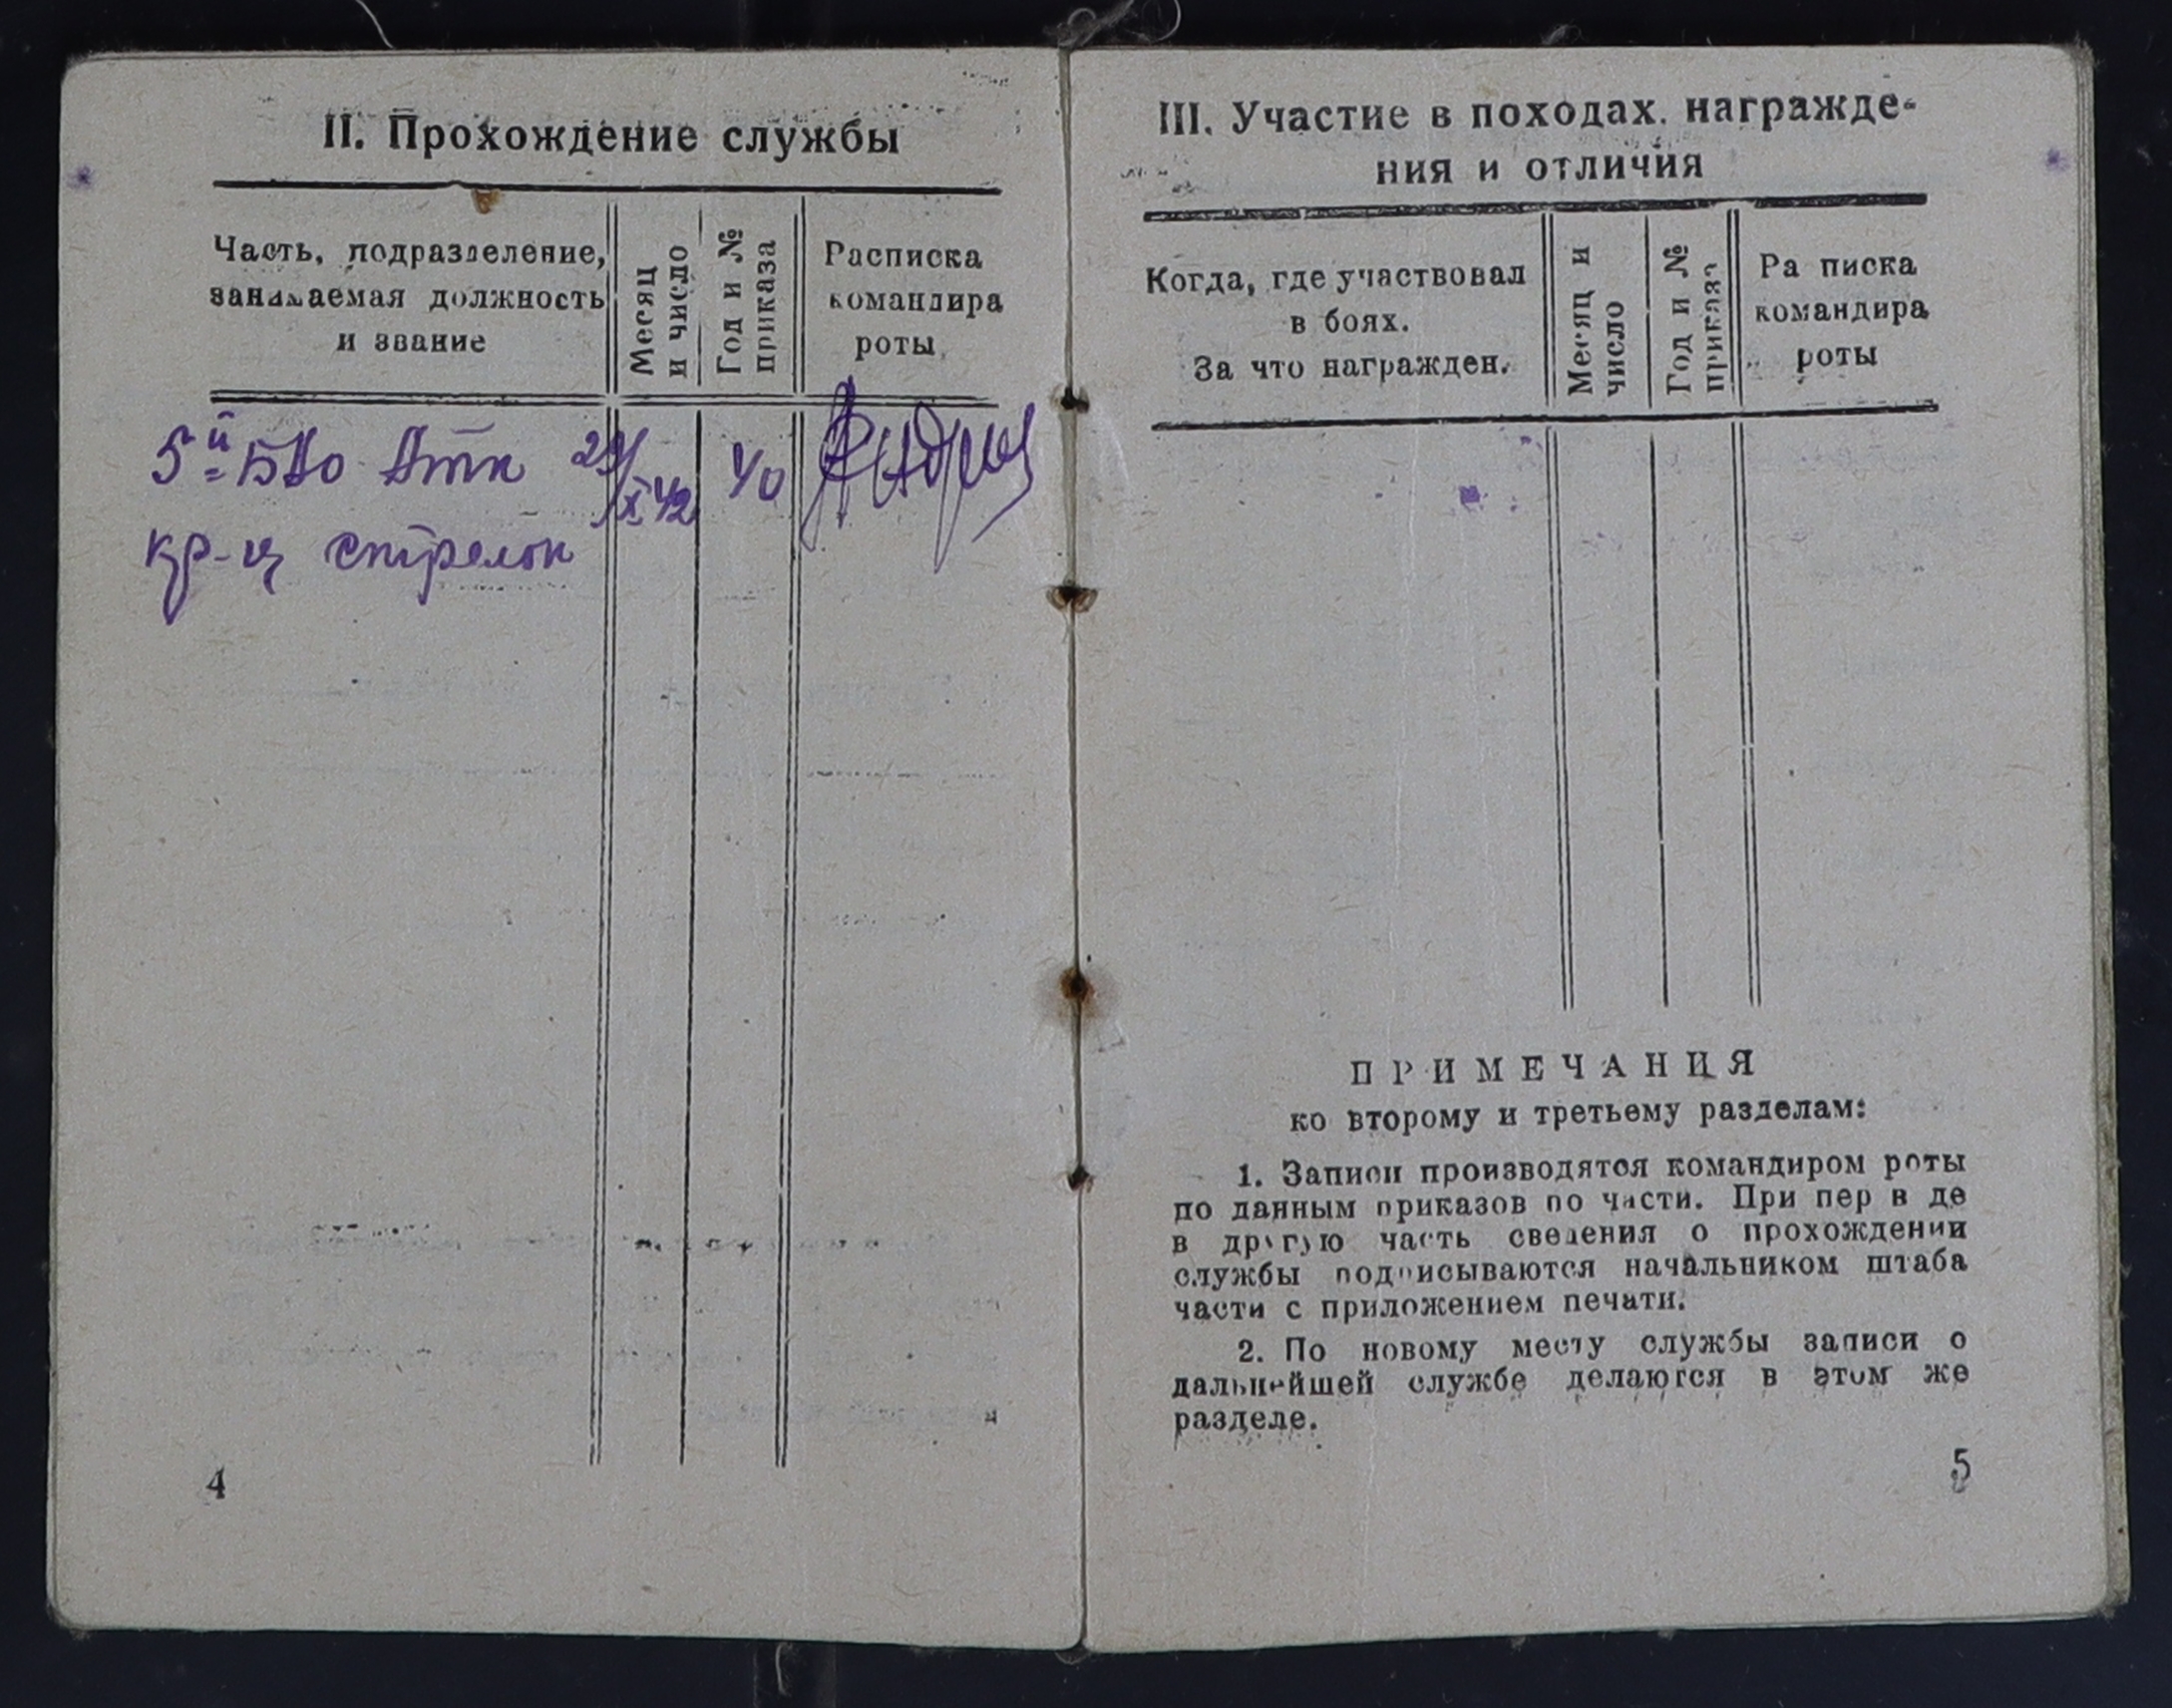 II. Прохождение службы
Часть, подразделение,
занимаемая должность
и звание
Месяц
и число
Год и №
приказа
Расписка
командира
роты
5й 29/X 42 40
кр-ц стрелок
4
III. Участие в походах. награжде-
ния и отличия
Когда, где участвовал
в боях.
За что награжден.
Месяц и
число
Год и №
приказа
Ра писка
командира
роты
ПРИМЕЧАНИЯ
ко второму и третьему разделам:
1. Записи производятся командиром роты
по данным приказов по части. При пер в де
в другую часть сведения о прохождении
службы подписываются начальником штаба
части с приложением печати.
2. По новому месту службы записи о
дальнейшей службе делаются в этом же
разделе.
5